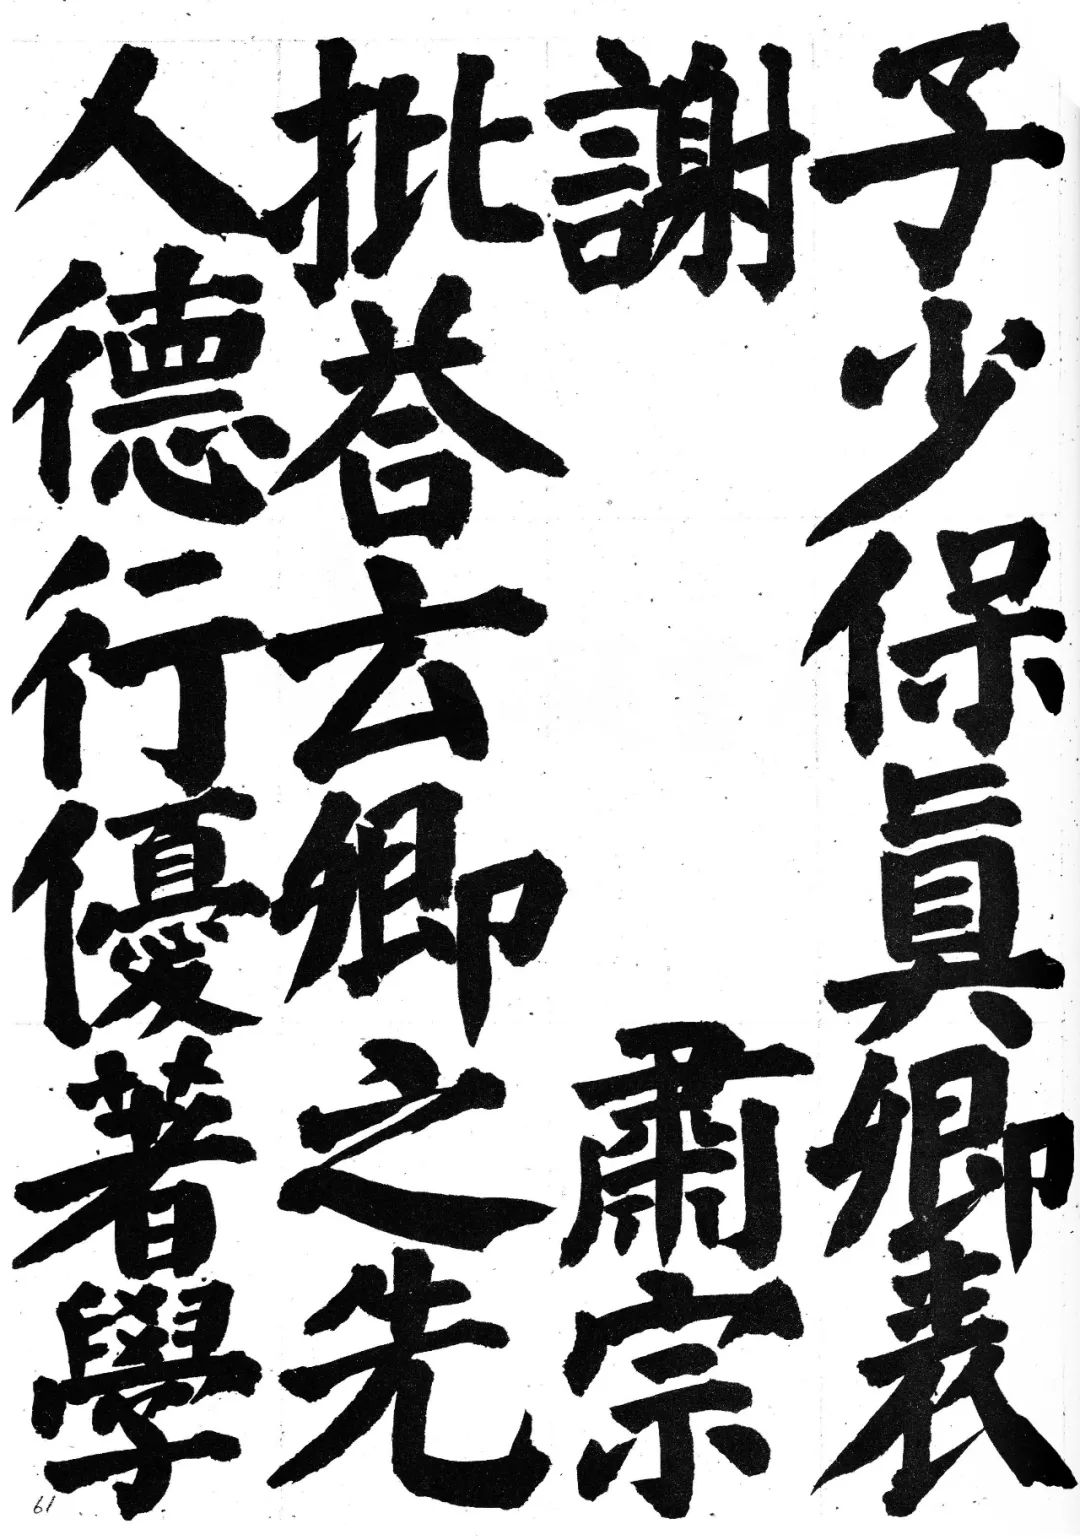 子少保真卿表
謝 肅宗
批荅云卿之先
人德行優著學
61